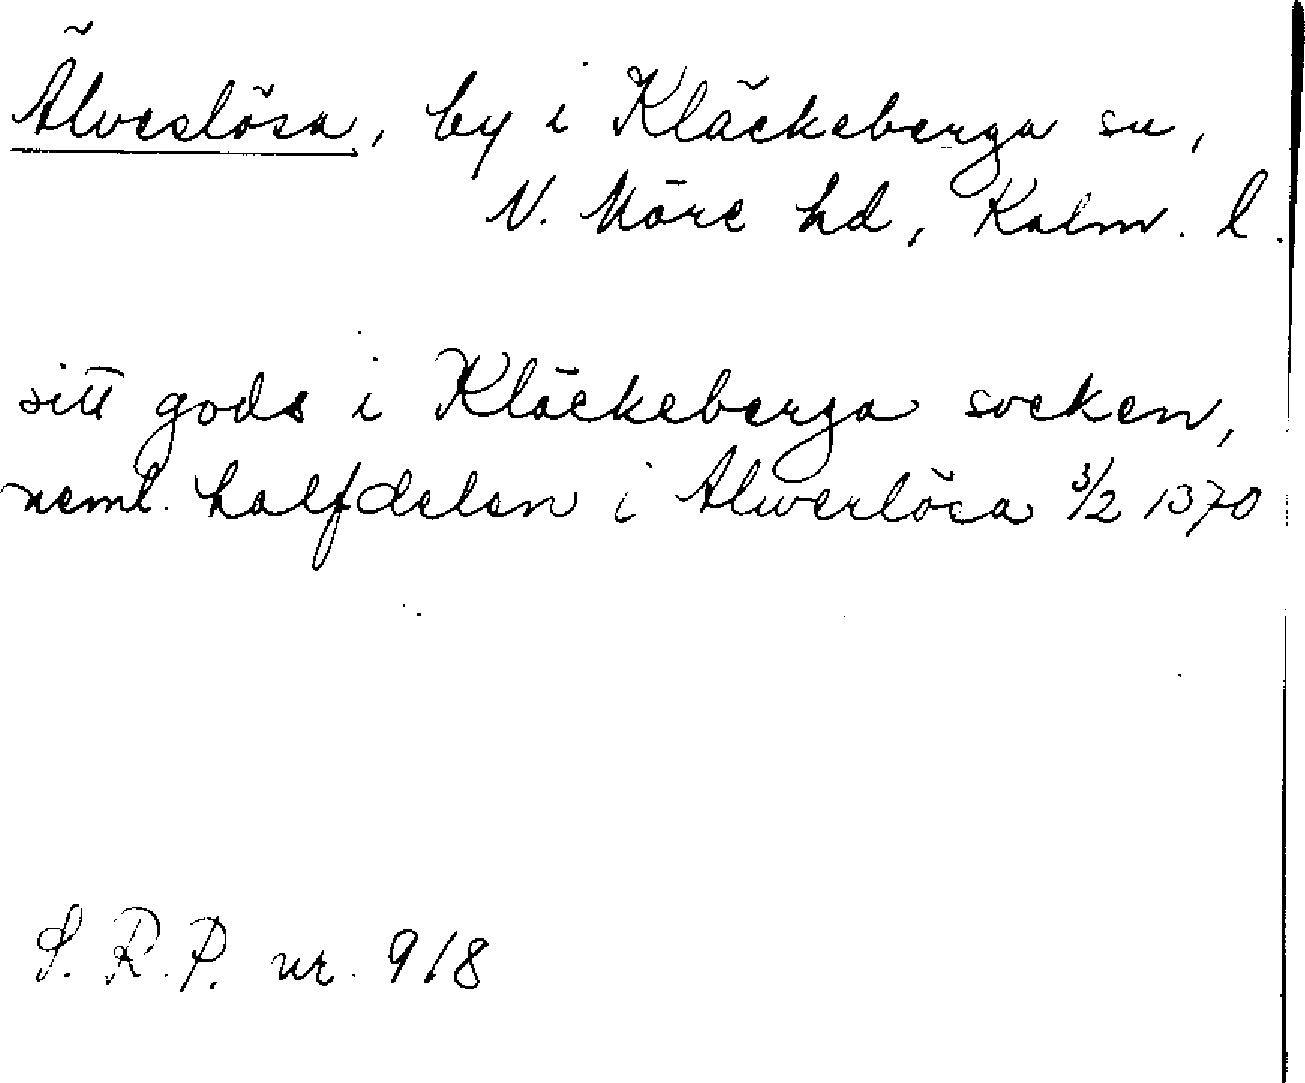 Älveslösa, by i Kläckeberga sn,
N. Möre hd, Kalm. l.
sitt gods i Kläckeberga socken,
neml. halfdelen i Alwerlösa 3/2 1370
S. R. P. nr. 918